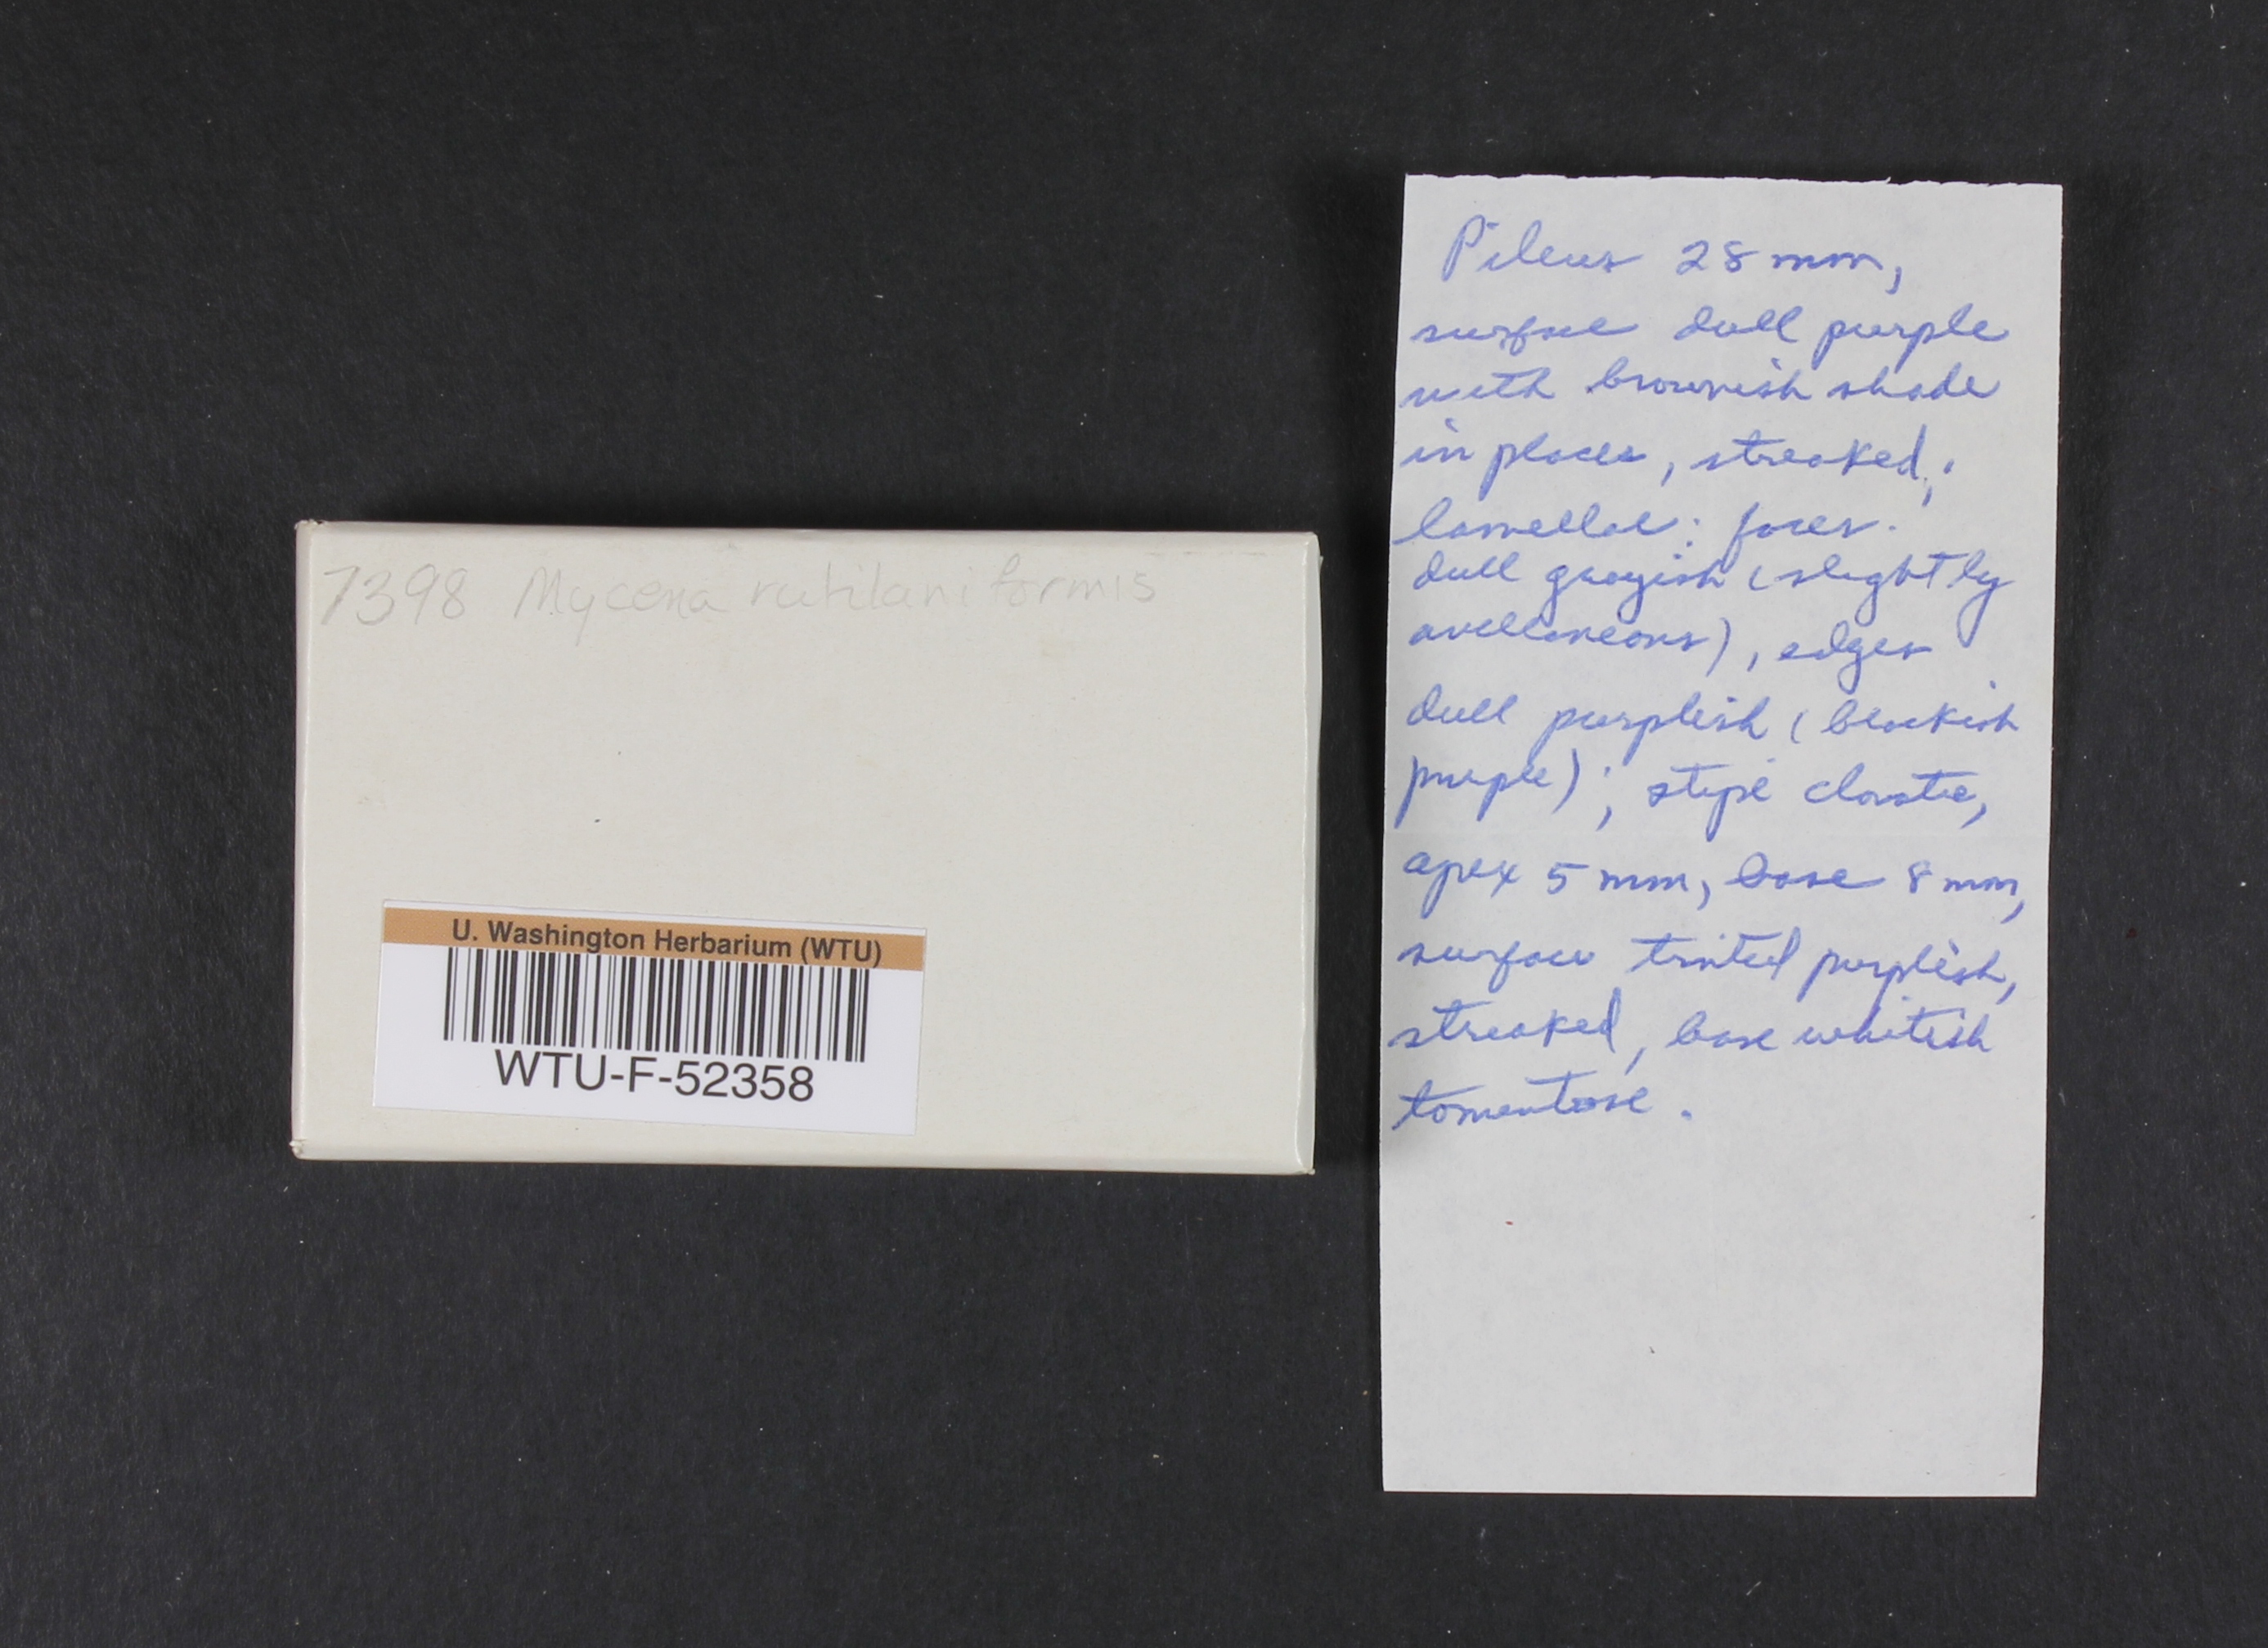 7398 Mycena rutilaniformis
U. Washington Herbarium (WTU)
WTU-F-52358
Pileus 28 mm,
surface dull purple
with brownish shade
in places, streaked;
lamellae: faces
dull grayish (slightly
avellaneous), edges
dull purplish (blackish
purple); stipe clavate,
apex 5 mm, base 8 mm,
surface tinted purplish,
streaked, base whitish
tomentose.